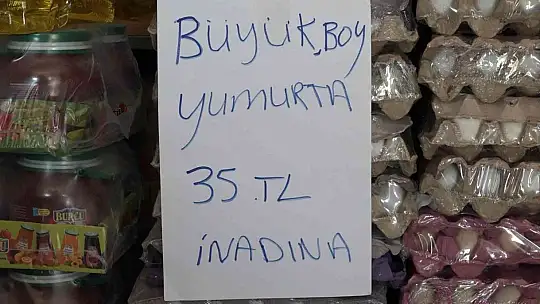 BÜYÜK BOY
YUMURTA
35.TL
İNADINA
BURCU